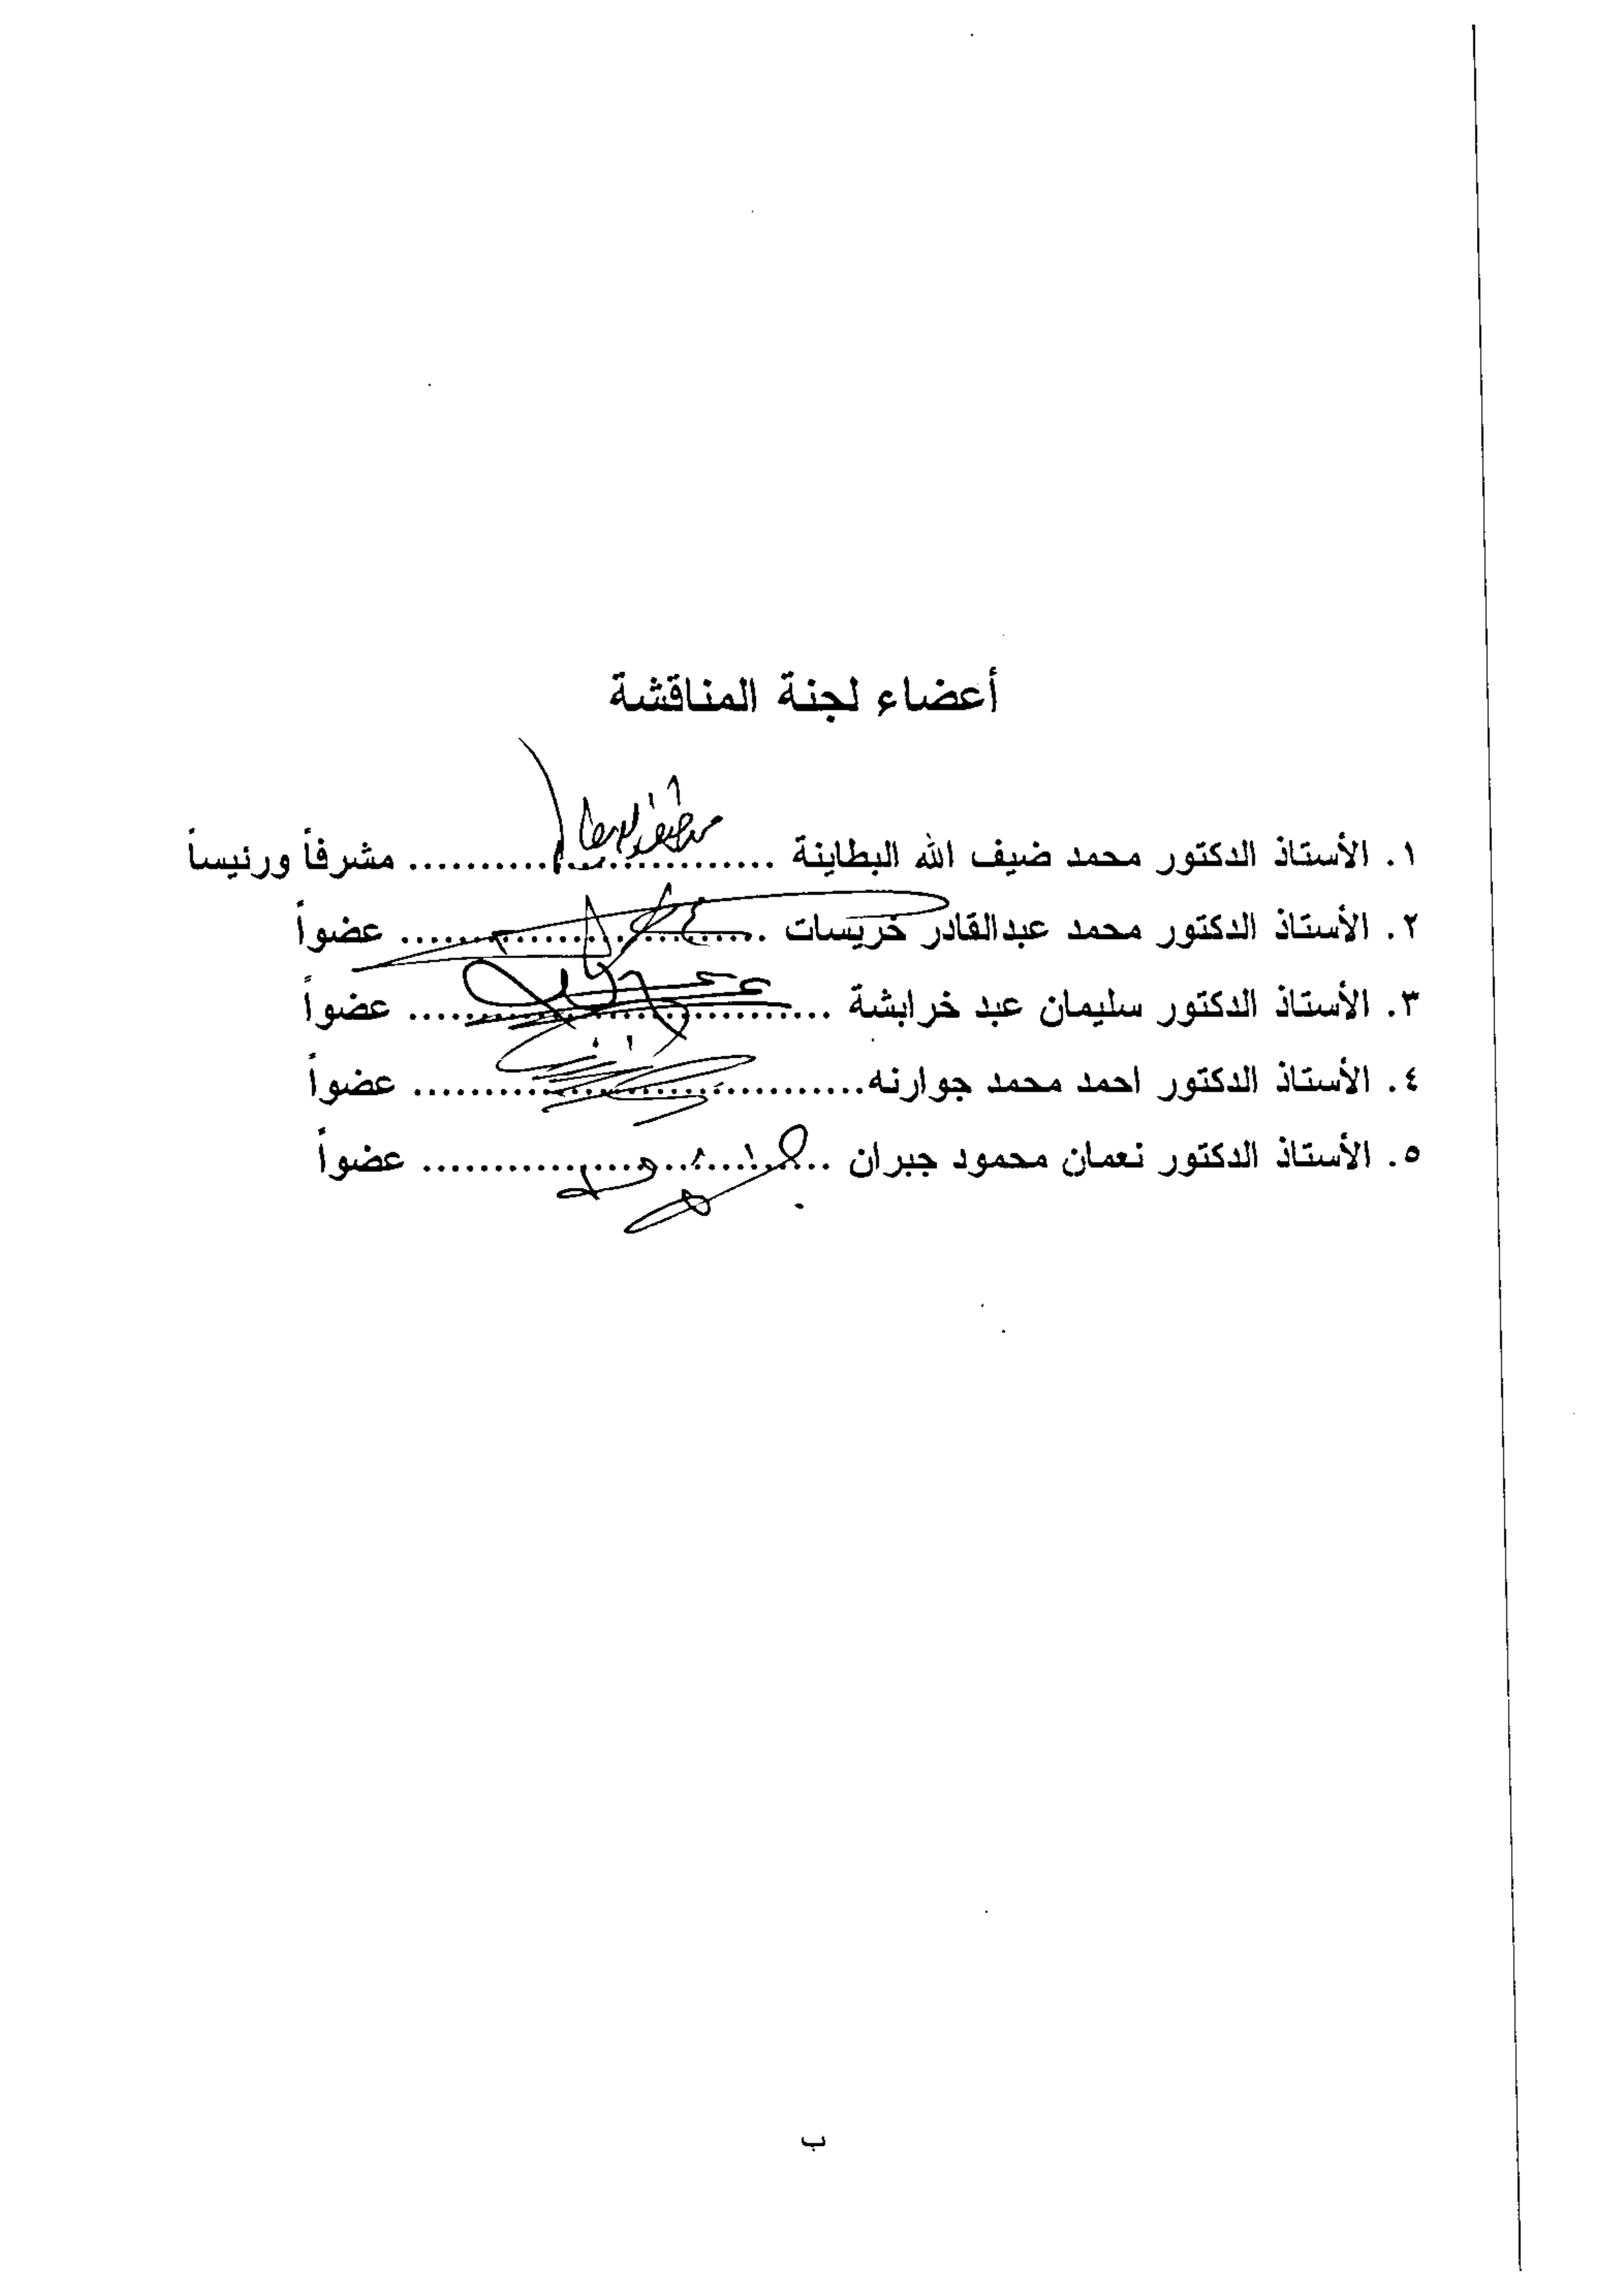 أعضاء لجنة المناقشة
١. الأستاذ الدكتور محمد ضيف الله البطاينة ......................... مشرفاً ورئيساً
٢. الأستاذ الدكتور محمد عبدالقادر خريسات ......................... عضواً
٣. الأستاذ الدكتور سليمان عبد خرابشة ............................. عضواً
٤. الأستاذ الدكتور احمد محمد جوارنه............................... عضواً
٥. الأستاذ الدكتور نعمان محمود جبران ............................ عضواً
ب